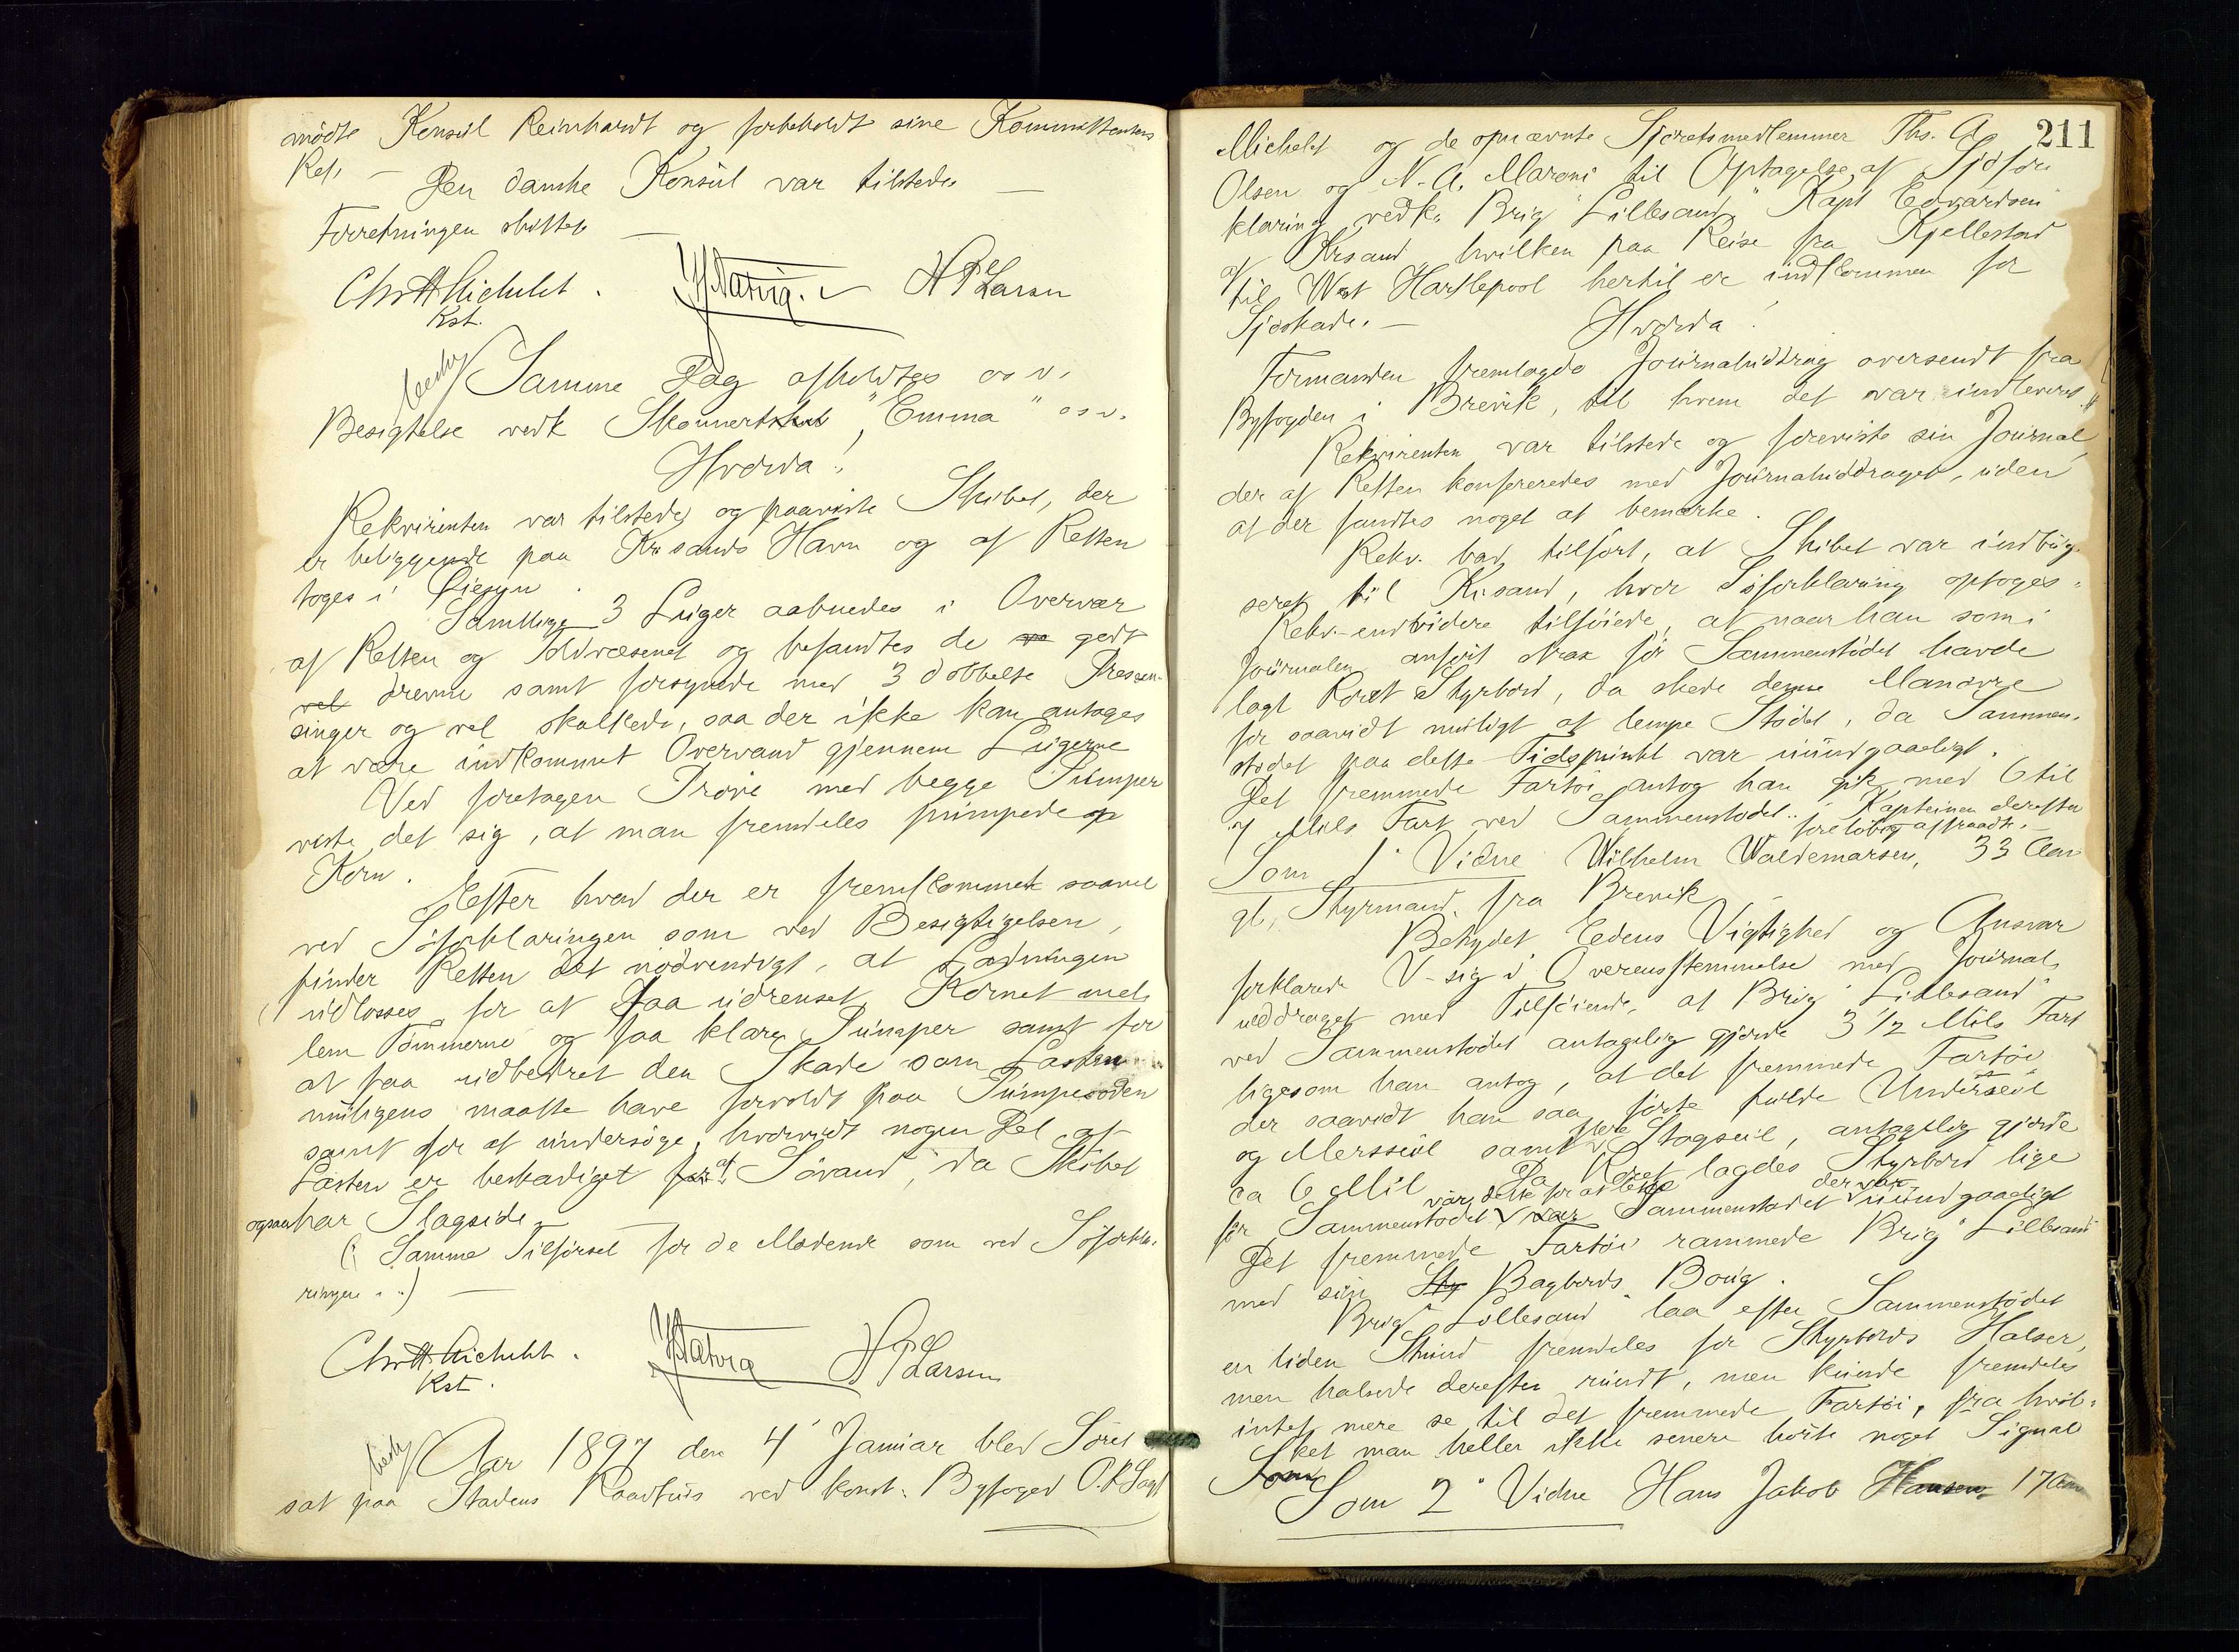 mödte Konsul Reinhardt og forbeholdt sine Kommittenters
Ret. — Den danske Konsul var tilstede. —
Forretningen sluttet —
Chr. A. Michelet. H. Natvig. H P Larsen
Kst.
Samme Dag afholdtes o s v.
Besigtelse vedk Skonnert "Emma" o s v.
Hvorda!
Rekvirenten var tilstede og paaviste Skibet, der
er beliggende paa Kr sands Havn og af Retten
toges i Öiesyn.
Samtlige 3 Luger aabnedes i Overvær
af Retten og Toldvæsenet og befandtes de godt
vel drevne samt forsynede med 3 dobbelte Presen-
ninger og vel skalkede, saa der ikke kan antages
at være indkommet Overvand gjennem Lugerne
Ved foretagen Pröve med begge Pumper
viste det sig, at man fremdeles pumpede op
Korn.
Efter hvad der er fremkommet saavel
ved Söforklaringen som ved Besigtigelsen,
finder Retten det nödvendigt, at Ladningen
udlosses for at faa udrenset Kornet mel-
lem Tömmerne og faa klare Pumper samt for
at faa udbedret den Skade som Lasten
muligens maatte have forvoldt paa Pumpesoden
samt for at undersöge, hvorvidt nogen Del af
Lasten er beskadiget af Sövand, da Skibet
ogsaa har Slagside.
(: Samme Tilförsel for de Mödende som ved Söforkla-
ringen :)
Chr. A. Michelet. H. Natvig H P Larsen
Kst.
Aar 1897 den 4' Januar blev Söret
sat paa Stadens Raadhus ved konst. Byfoged
211
Michelet og de opnævnte Sjöretsmedlemmer Ths. A.
Olsen og N. A. Maroni til Optagelse af Sjöfor-
klaring vedk. Brig "Lillesand" Kapt Edvardsen
af Krsand, hvilken paa Reise fra Kjellestad
til West Hartlepool hertil er indkommen for
Sjöskade. — Hvorda!
Formanden fremlagde Journaludtrag oversendt fra
Byfogden i Brevik, til hvem det var indleveret.
Rekvirenten var tilstede og foreviste sin Journal,
der af Retten konfereredes med Journaluddraget, uden
at der fandtes noget at bemærke.
Rekv. bad tilfört, at Skibet var indbug-
seret til Krsand, hvor Söforklaring optoges.
Rekv. endvidere tilföiede, at naar han som i
Journalen anfört strax för Sammenstödet havde
lagt Roret Styrbord, da skede denne Manövre
for saavidt muligt at lempe Stödet, da Sammen-
stödet paa dette Tidspunkt var uundgaaeligt.
Det fremmede Fartöi antog han gik med 6 til
7 Mils Fart ved Sammenstödet. Kapteinen derefter
foreløbig aftraadt.
Som 1' Vidne Wilhelm Waldemarsen, 33 Aar
gl, Styrmand, fra Brevik.
Betydet Edens Vigtighed og Ansvar
forklarede V. sig i Overensstemmelse med Journal-
uddraget med Tilföiende, at Brig "Lillesand"
ved Sammenstödet antagelig gjorde 3 1/2 Mils Fart
ligesom han antog, at det fremmede Fartöi
der saavidt han saa förte fulde Underseil
og Mersseil samt flere Stagseil, antagelig gjorde
ca 6 Mil. Da Roret lagdes Styrbord lige
var dette for at lempe der var
för Sammenstödet var Sammenstödet uundgaaeligt
Det fremmede Fartöi rammede Brig "Lillesand"
med sin Sty Bagbords Boug.
Brig "Lillesand" laa efter Sammenstödet
en liden Stund fremdeles for Styrbords Halser,
men halsede derefter rundt, men kunde fremdeles
intet mere se til det fremmede Fartöi, fra hvil-
ket man heller ikke senere hörte noget Signal
Som
Som 2' Vidne Hans Jakob Hansen 17 Aar